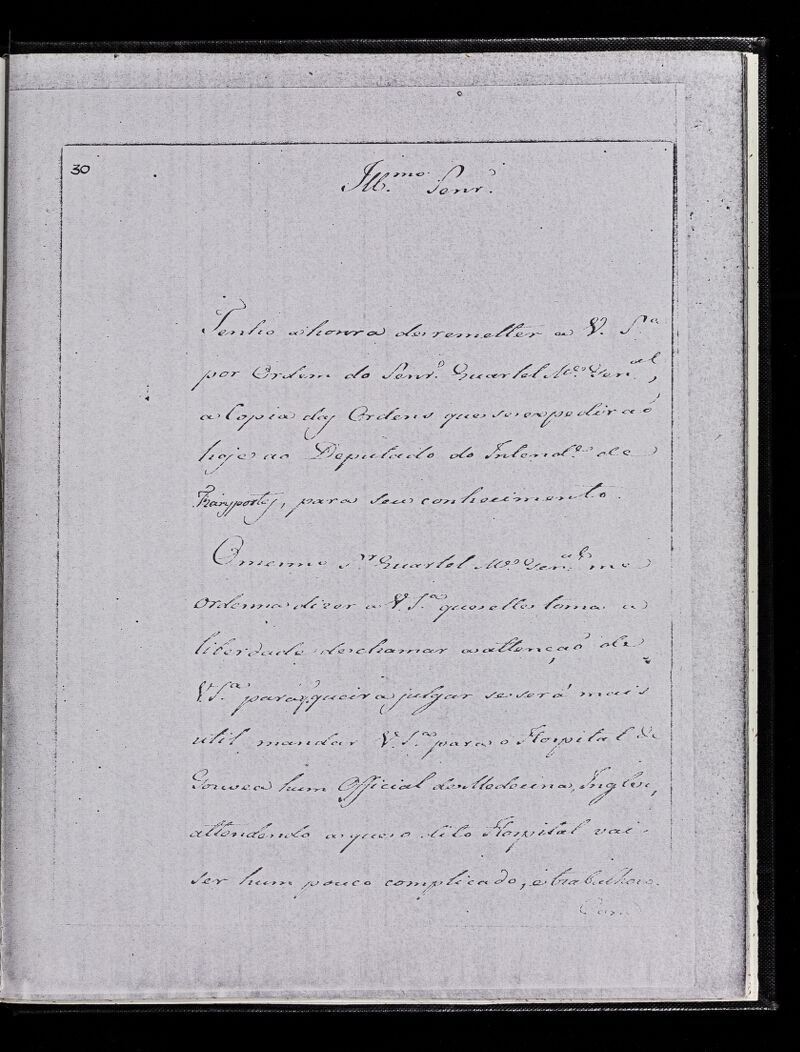 30
Ill.mo Senr.
Tenho a honra de remetter a V. S.a
por Ordem do Senr. Quartel M.e Gen.al,
a Copia das Ordens que se expediraõ
hoje ao Deputado do Intend.e de
Transportes, para seu conhecimento.
O mesmo S.r Quartel M.e Gen.al me
ordenna dizer a V S.a que elle toma a
liberdade de chamar a attençaõ de
V S.a para q. queira julgar se será mais
util mandar V. S.a para o Hospital de
Gouvea hum Official de Medecina, Inglez,
attendendo a que o dito Hospital vai
ser hum pouco complicado, e trabalhozo.